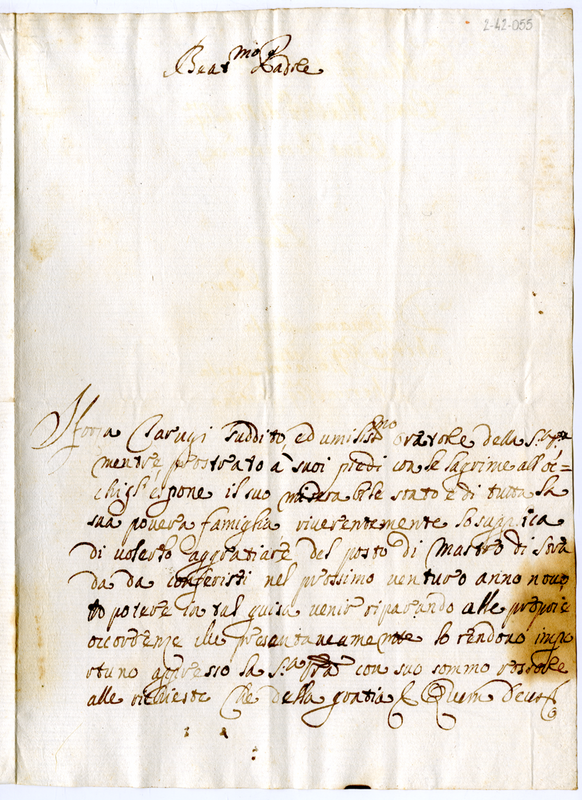 2-42-055
Beat.mo Padre
Sforza Carugi suddito, ed umiliss.mo Oratore della S.tà V.
mentre prostrato a suoi piedi con le lagrime all'oc=
chi gl'espone il suo miserabile stato e di tutta la
sua povera famiglia riverentemente lo supplica
di volerlo aggratiare del posto di Mastro di Stra
da da conferirsi nel prossimo venturo anno
to potere in tal guisa venir riparando alle proprie
occorenze che presentaneamente lo rendono impo
rtuno appresso la S.tà con suo sommo rossore
alle richieste Che della gratia Quam Deus